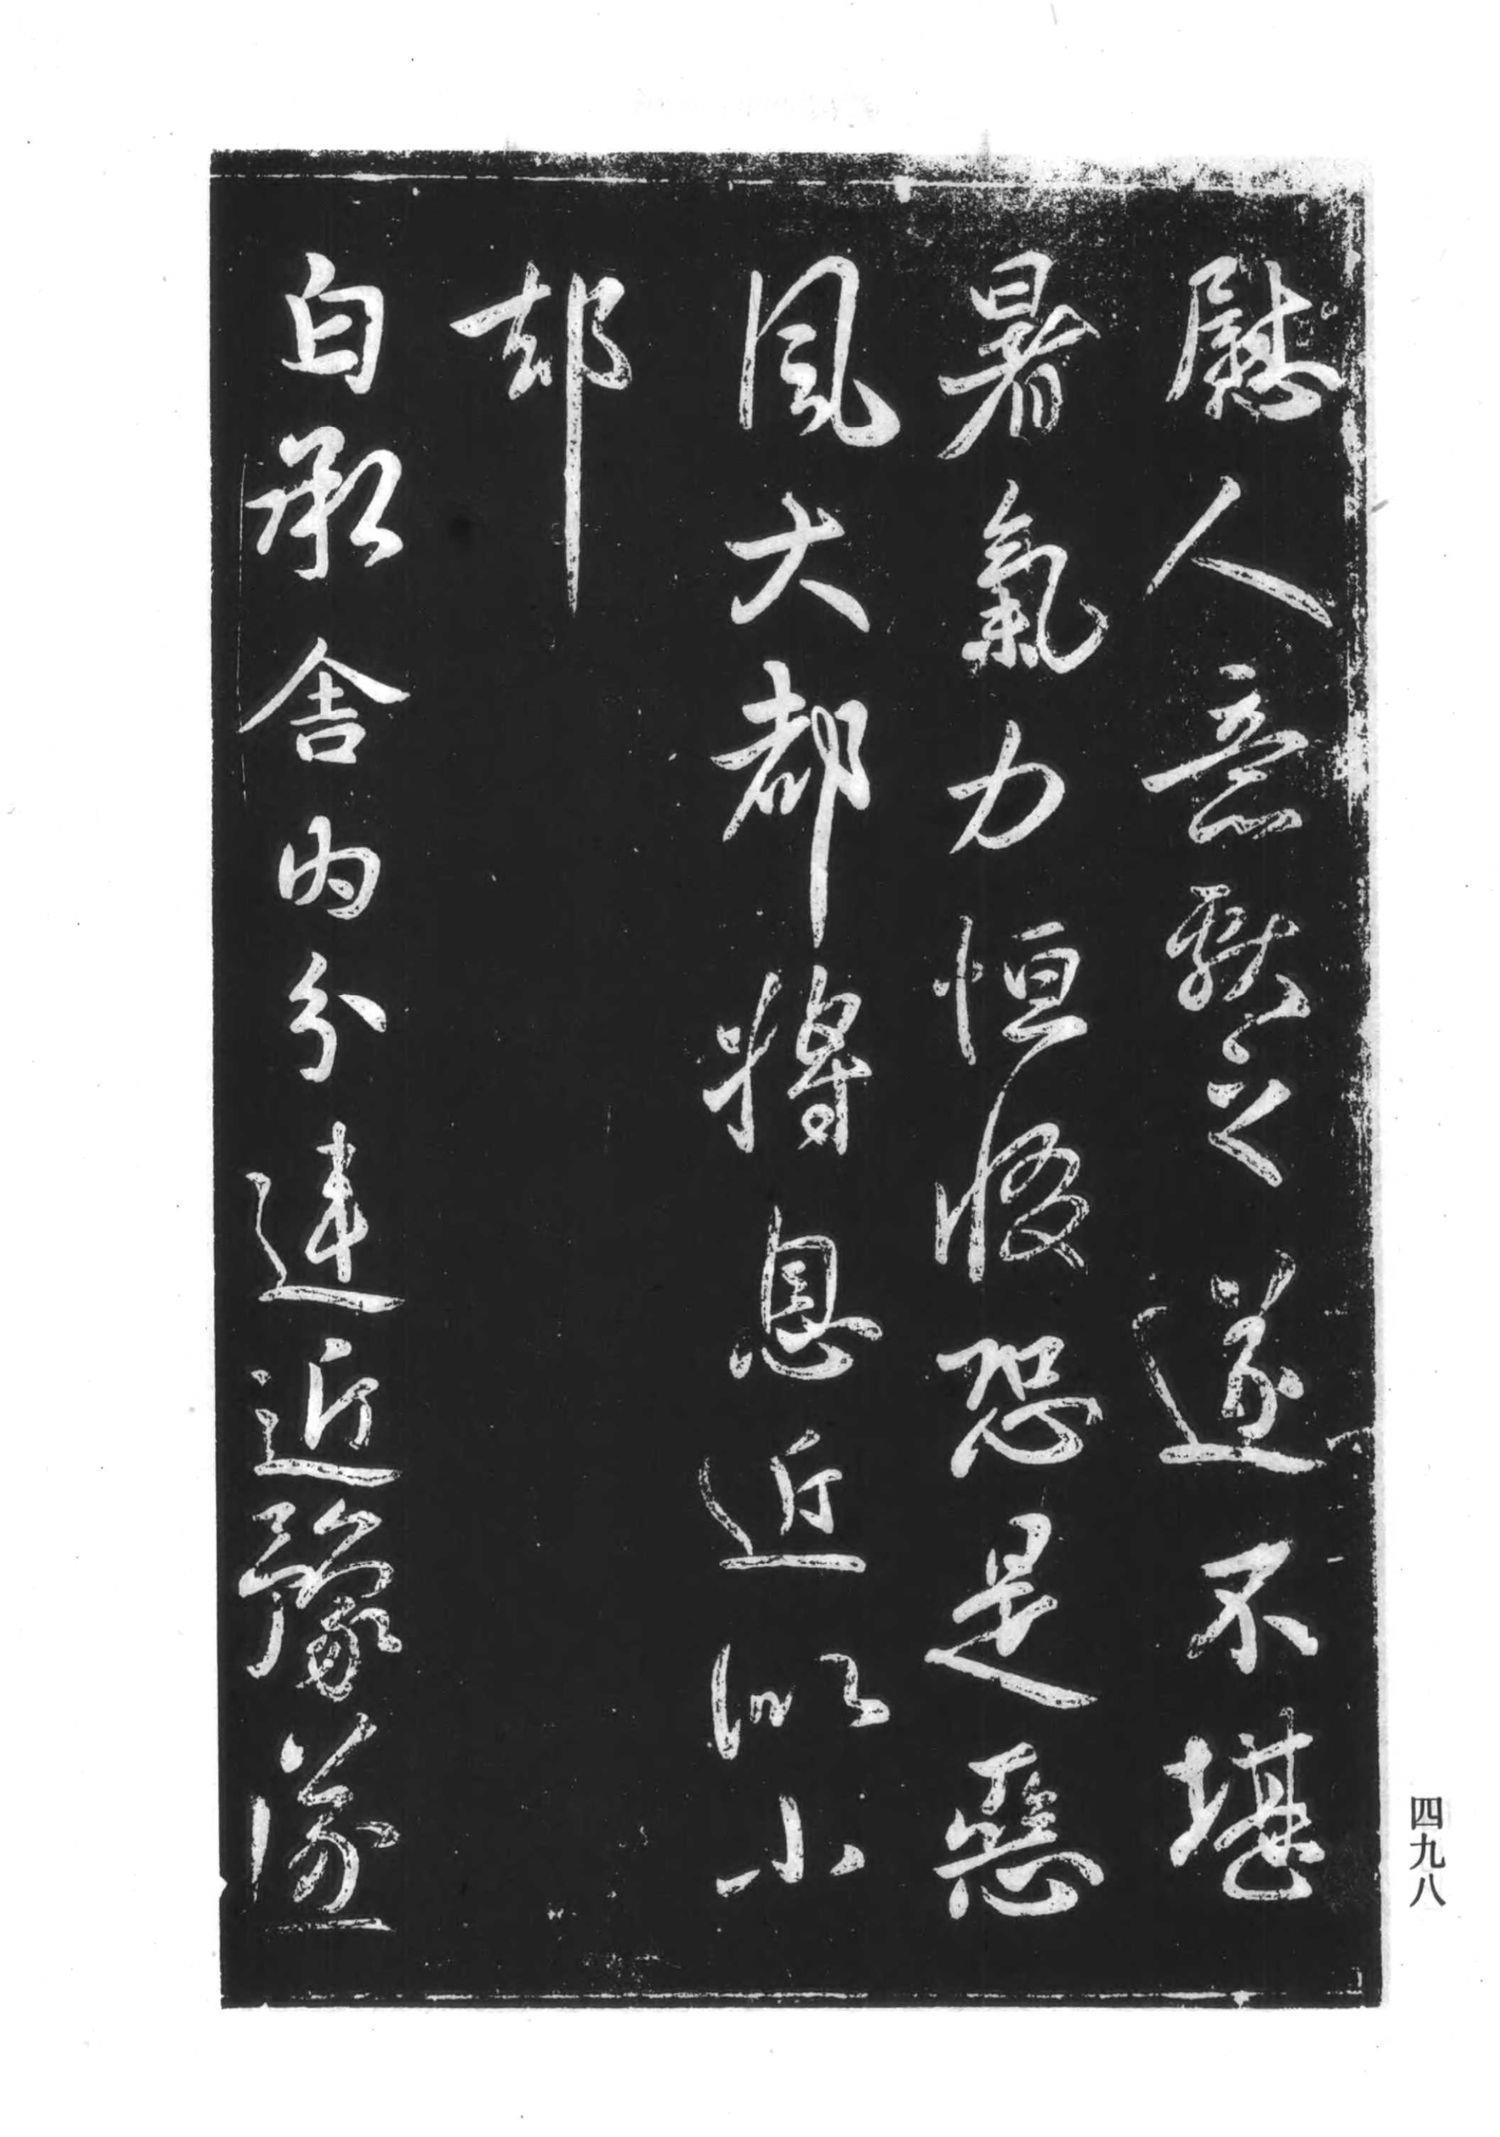 慰人意獻之遂不堪
暑氣力恒惙恐是惡
風大都將息近似小
却
白承舍內分違近豫遂
四九八